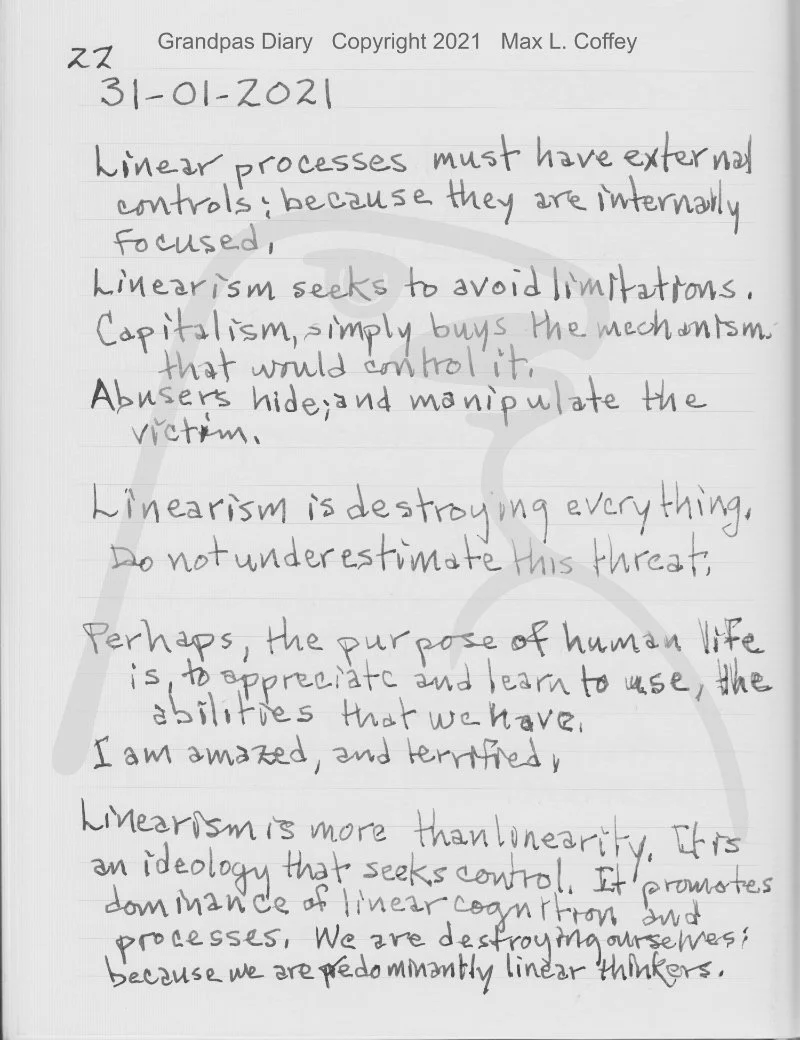 Grandpas Diary Copyright 2021 Max L. Coffey
22
31-01-2021
Linear processes must have external
controls; because they are internally
focused.
Linearism seeks to avoid limitations.
Capitalism, simply buys the mechanism
that would control it.
Abusers hide; and manipulate the
victim.
Linearism is destroying everything.
Do not underestimate this threat.
Perhaps, the purpose of human life
is, to appreciate and learn to use, the
abilities that we have.
I am amazed, and terrified.
Linearism is more than linearity. It is
an ideology that seeks control. It promotes
dominance of linear cognition and
processes. We are destroying ourselves;
because we are predominantly linear thinkers.